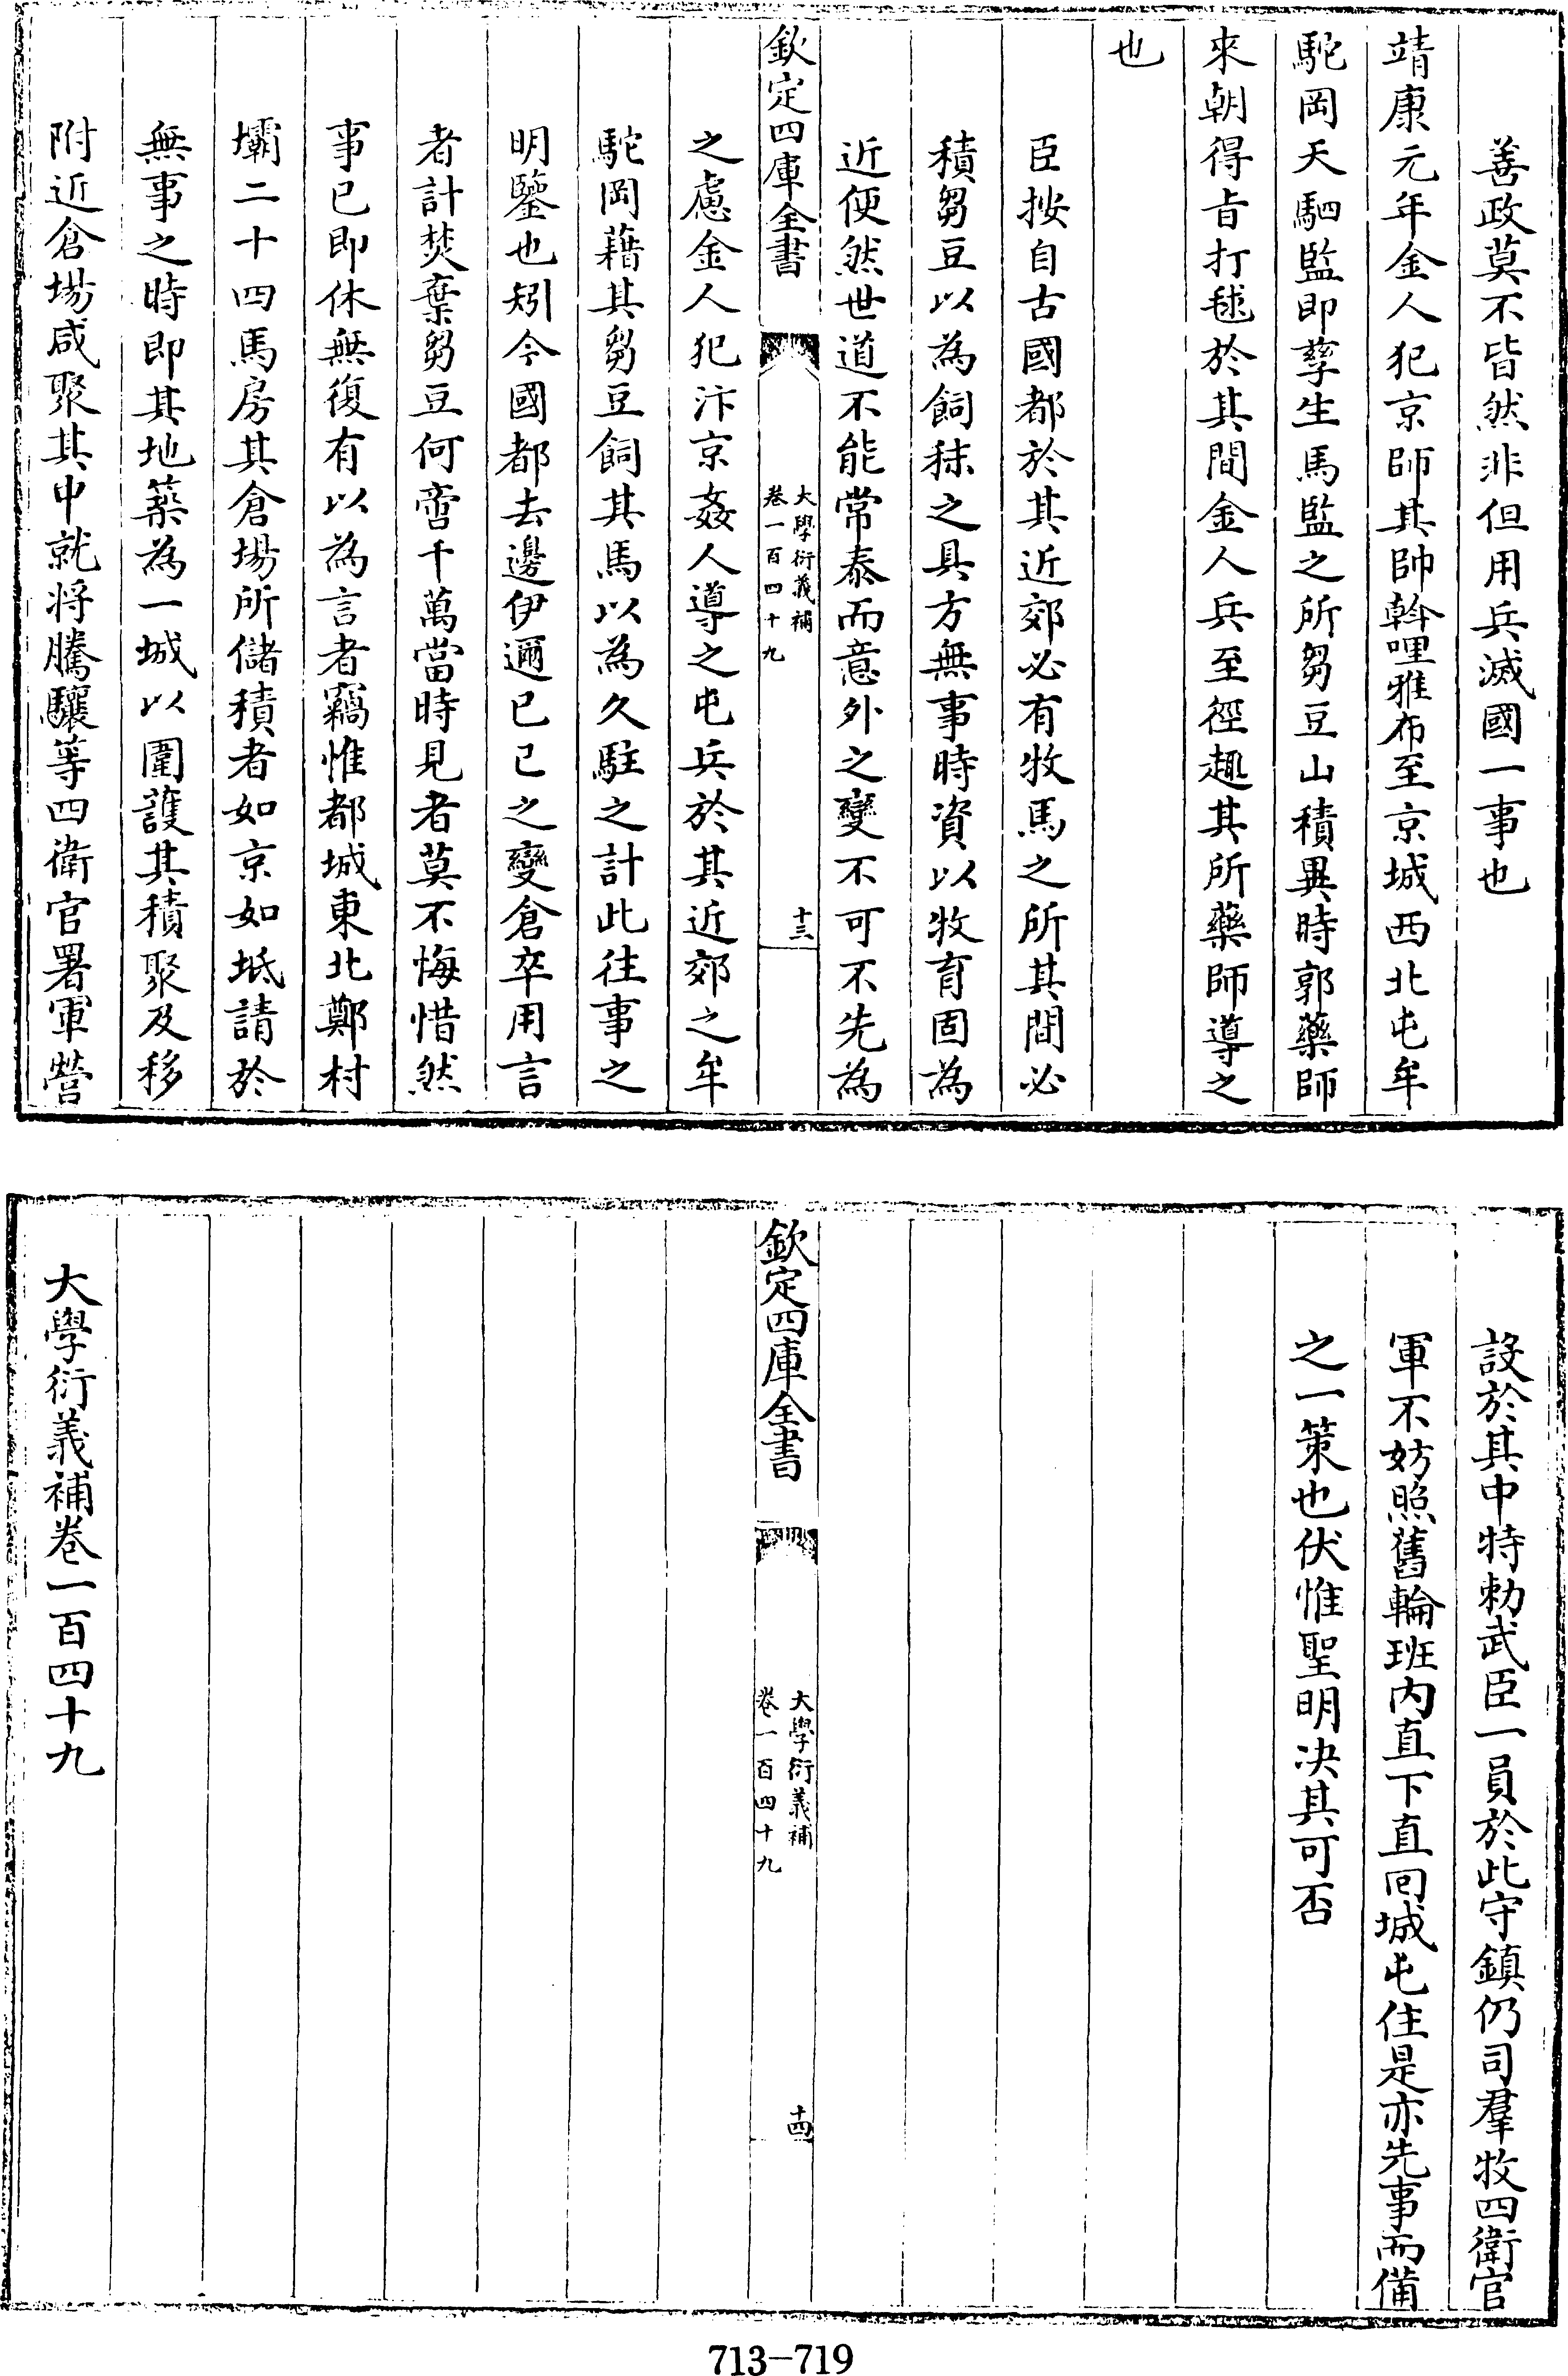 善政莫不皆然非但用兵滅國一事也
靖康元年金人犯京師其帥斡哩雅布至京城西北屯牟
駝岡天駟監即孳生馬監之所芻豆山積異時郭藥師
來朝得旨打毬於其間金人兵至徑趣其所藥師導之
也
臣按自古國都於其近郊必有牧馬之所其間必
積芻豆以為飼秣之具方無事時資以牧育固為
近便然世道不能常泰而意外之變不可不先為
欽定四庫全書
大學衍義補
卷一百四十九
十三
之慮金人犯汴京姦人導之屯兵於其近郊之牟
駝岡藉其芻豆飼其馬以為久駐之計此往事之
明鑒也矧今國都去邊伊邇已已之變倉卒用言
者計焚棄芻豆何啻千萬當時見者莫不悔惜然
事已即休無復有以為言者竊惟都城東北鄭村
壩二十四馬房其倉場所儲積者如京如坻請於
無事之時即其地築為一城以圍護其積聚及移
附近倉場咸聚其中就將騰驤等四衛官署軍營
設於其中特勅武臣一員於此守鎮仍司羣牧四衛官
軍不妨照舊輪班內直下直囘城屯住是亦先事而備
之一策也伏惟聖明決其可否
欽定四庫全書
大學衍義補
卷一百四十九
十四
大學衍義補卷一百四十九
713-719